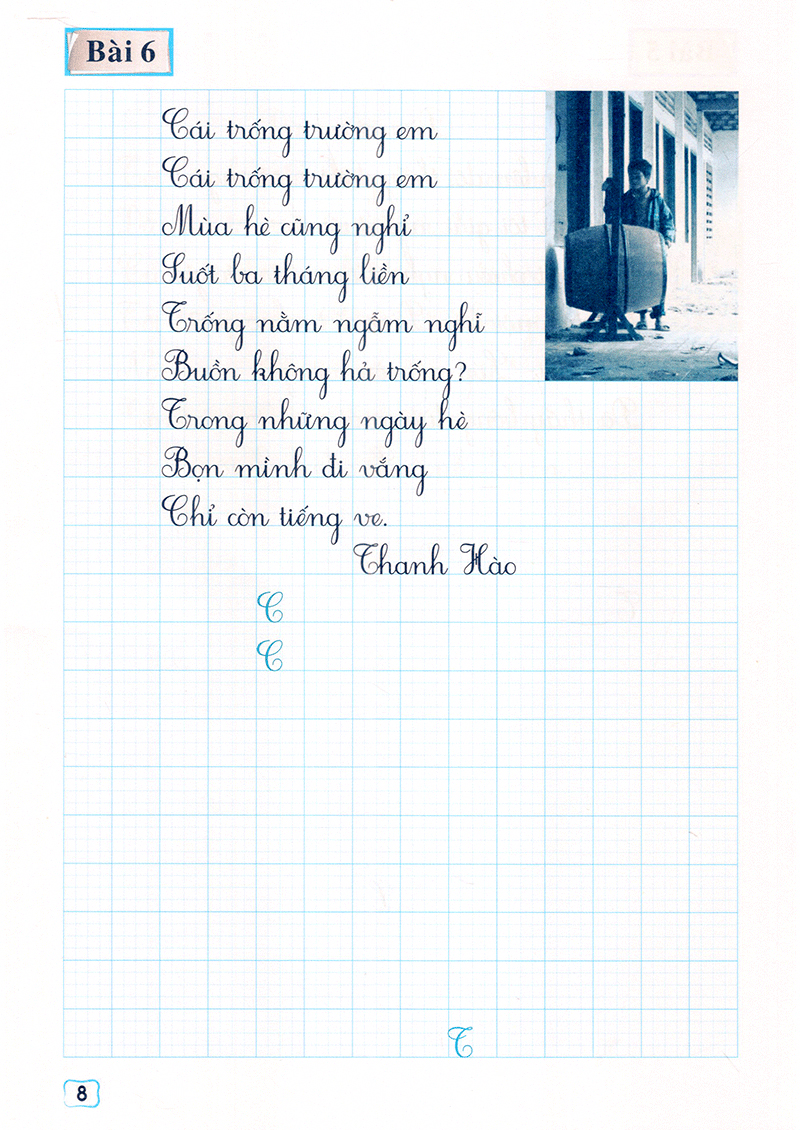 Bài 6
Cái trống trường em
Cái trống trường em
Mùa hè cũng nghỉ
Suốt ba tháng liền
Trống nằm ngẫm nghĩ
Buồn không hả trống?
Trong những ngày hè
Bọn mình đi vắng
Chỉ còn tiếng ve.
Thanh Hào
C
C
T
8